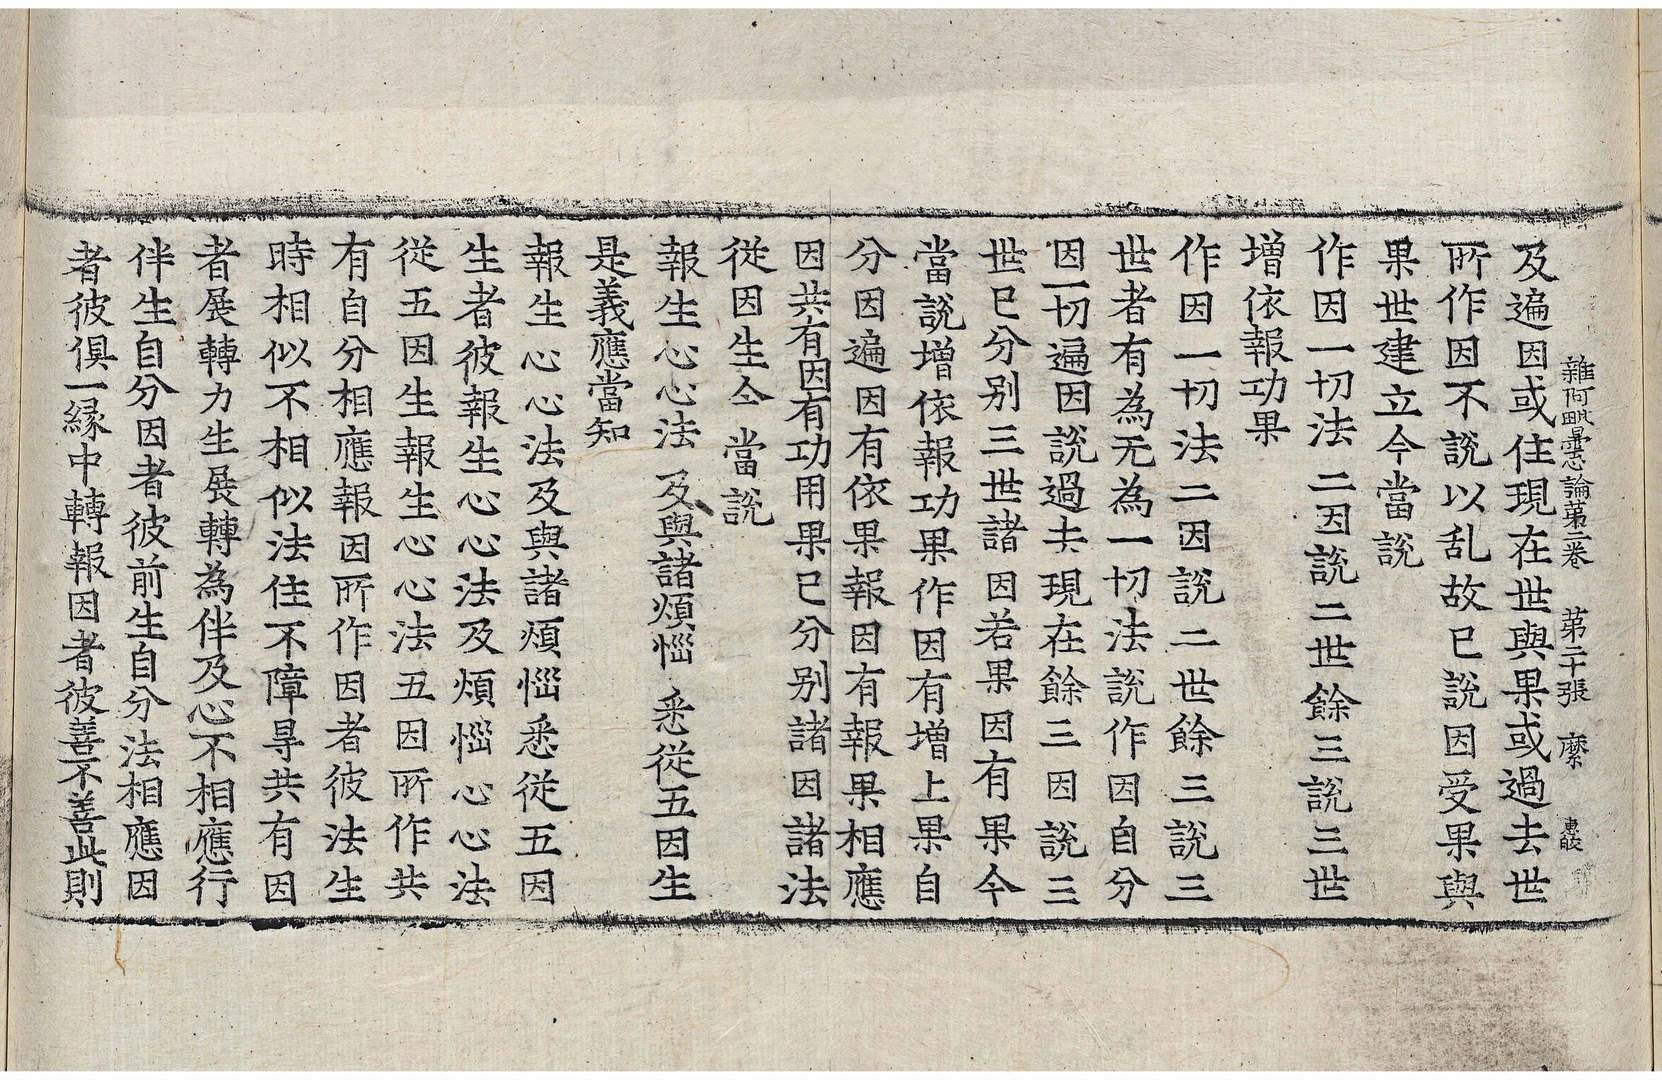 雜阿毗曇心論第二卷 第二十張 縻
及遍因或住現在世與果或過去世
所作因不說以乱故已說因受果與
果世建立今當說
作因一切法 二因說二世餘三說三世
增依報功果
作因一切法二因說二世餘三說三
世者有為无為一切法說作因自分
因一切遍因說過去現在餘三因說三
世已分別三世諸因若果因有果今
當說增依報功果作因有增上果自
分因遍因有依果報因有報果相應
因共有因有功用果已分別諸因諸法
從因生今當說
報生心心法 及與諸煩惱 悉從五因生
是義應當知
報生心心法及與諸煩惱悉從五因
生者彼報生心心法及煩惱心心法
從五因生報生心心法五因所作共
有自分相應報因所作因者彼法生
時相似不相似法住不障㝵共有因
者展轉力生展轉為伴及心不相應行
伴生自分因者彼前生自分法相應因
者彼俱一緣中轉報因者彼善不善此則